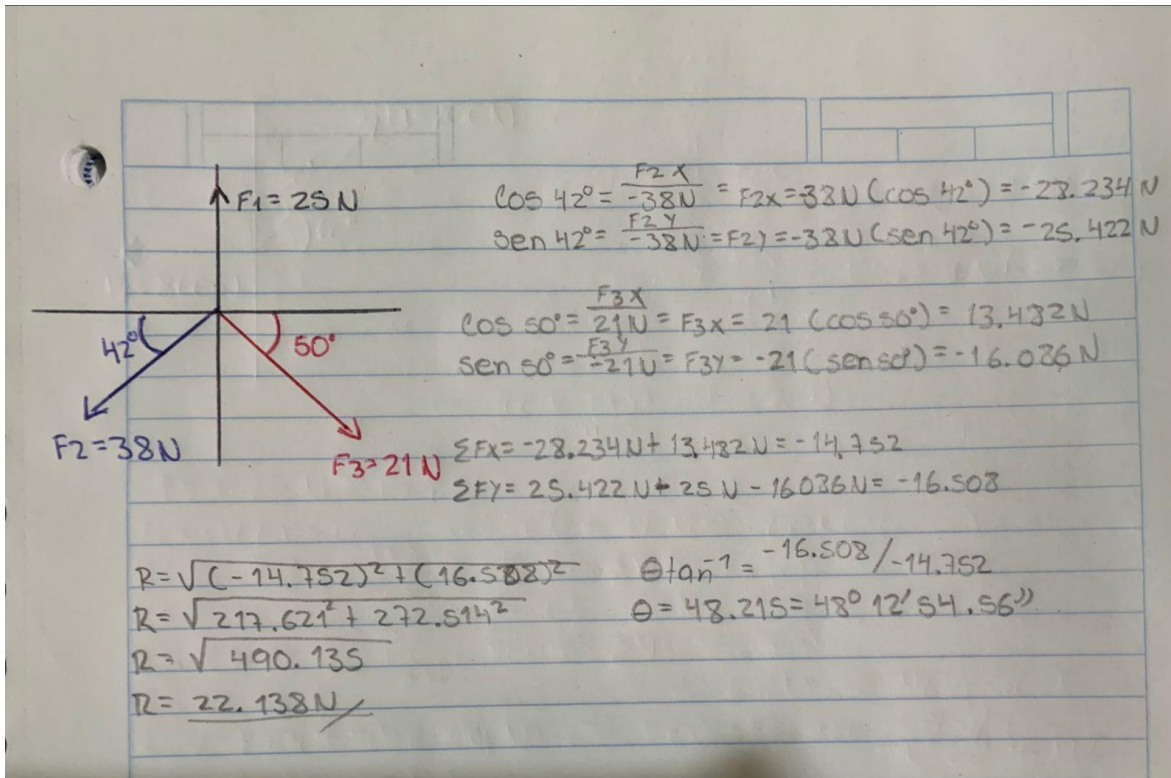 F1=25N
42°
50°
F2=38N
F3=21N
Cos 42°= F2X/-38N = F2X=-38N (cos 42°) = -28.234 N
Sen 42°= F2Y/-38N = F2Y=-38N (sen 42°) = -25.422 N
Cos 50°= F3X/21N = F3X= 21 (cos 50°) = 13.482N
Sen 50°= F3Y/-21N = F3Y= -21 (sen 50°) = -16.086 N
ΣFX= -28.234N+ 13.482N= -14,752
ΣFY= 25.422N+ 25N - 16.086N= -16.508
R=√(-14.752)²+(16.508)²
R=√217.621²+ 272.514²
R=√490.135
R= 22.138N
θtan⁻¹= -16.508/-14.752
θ= 48.215= 48° 12' 54.56"